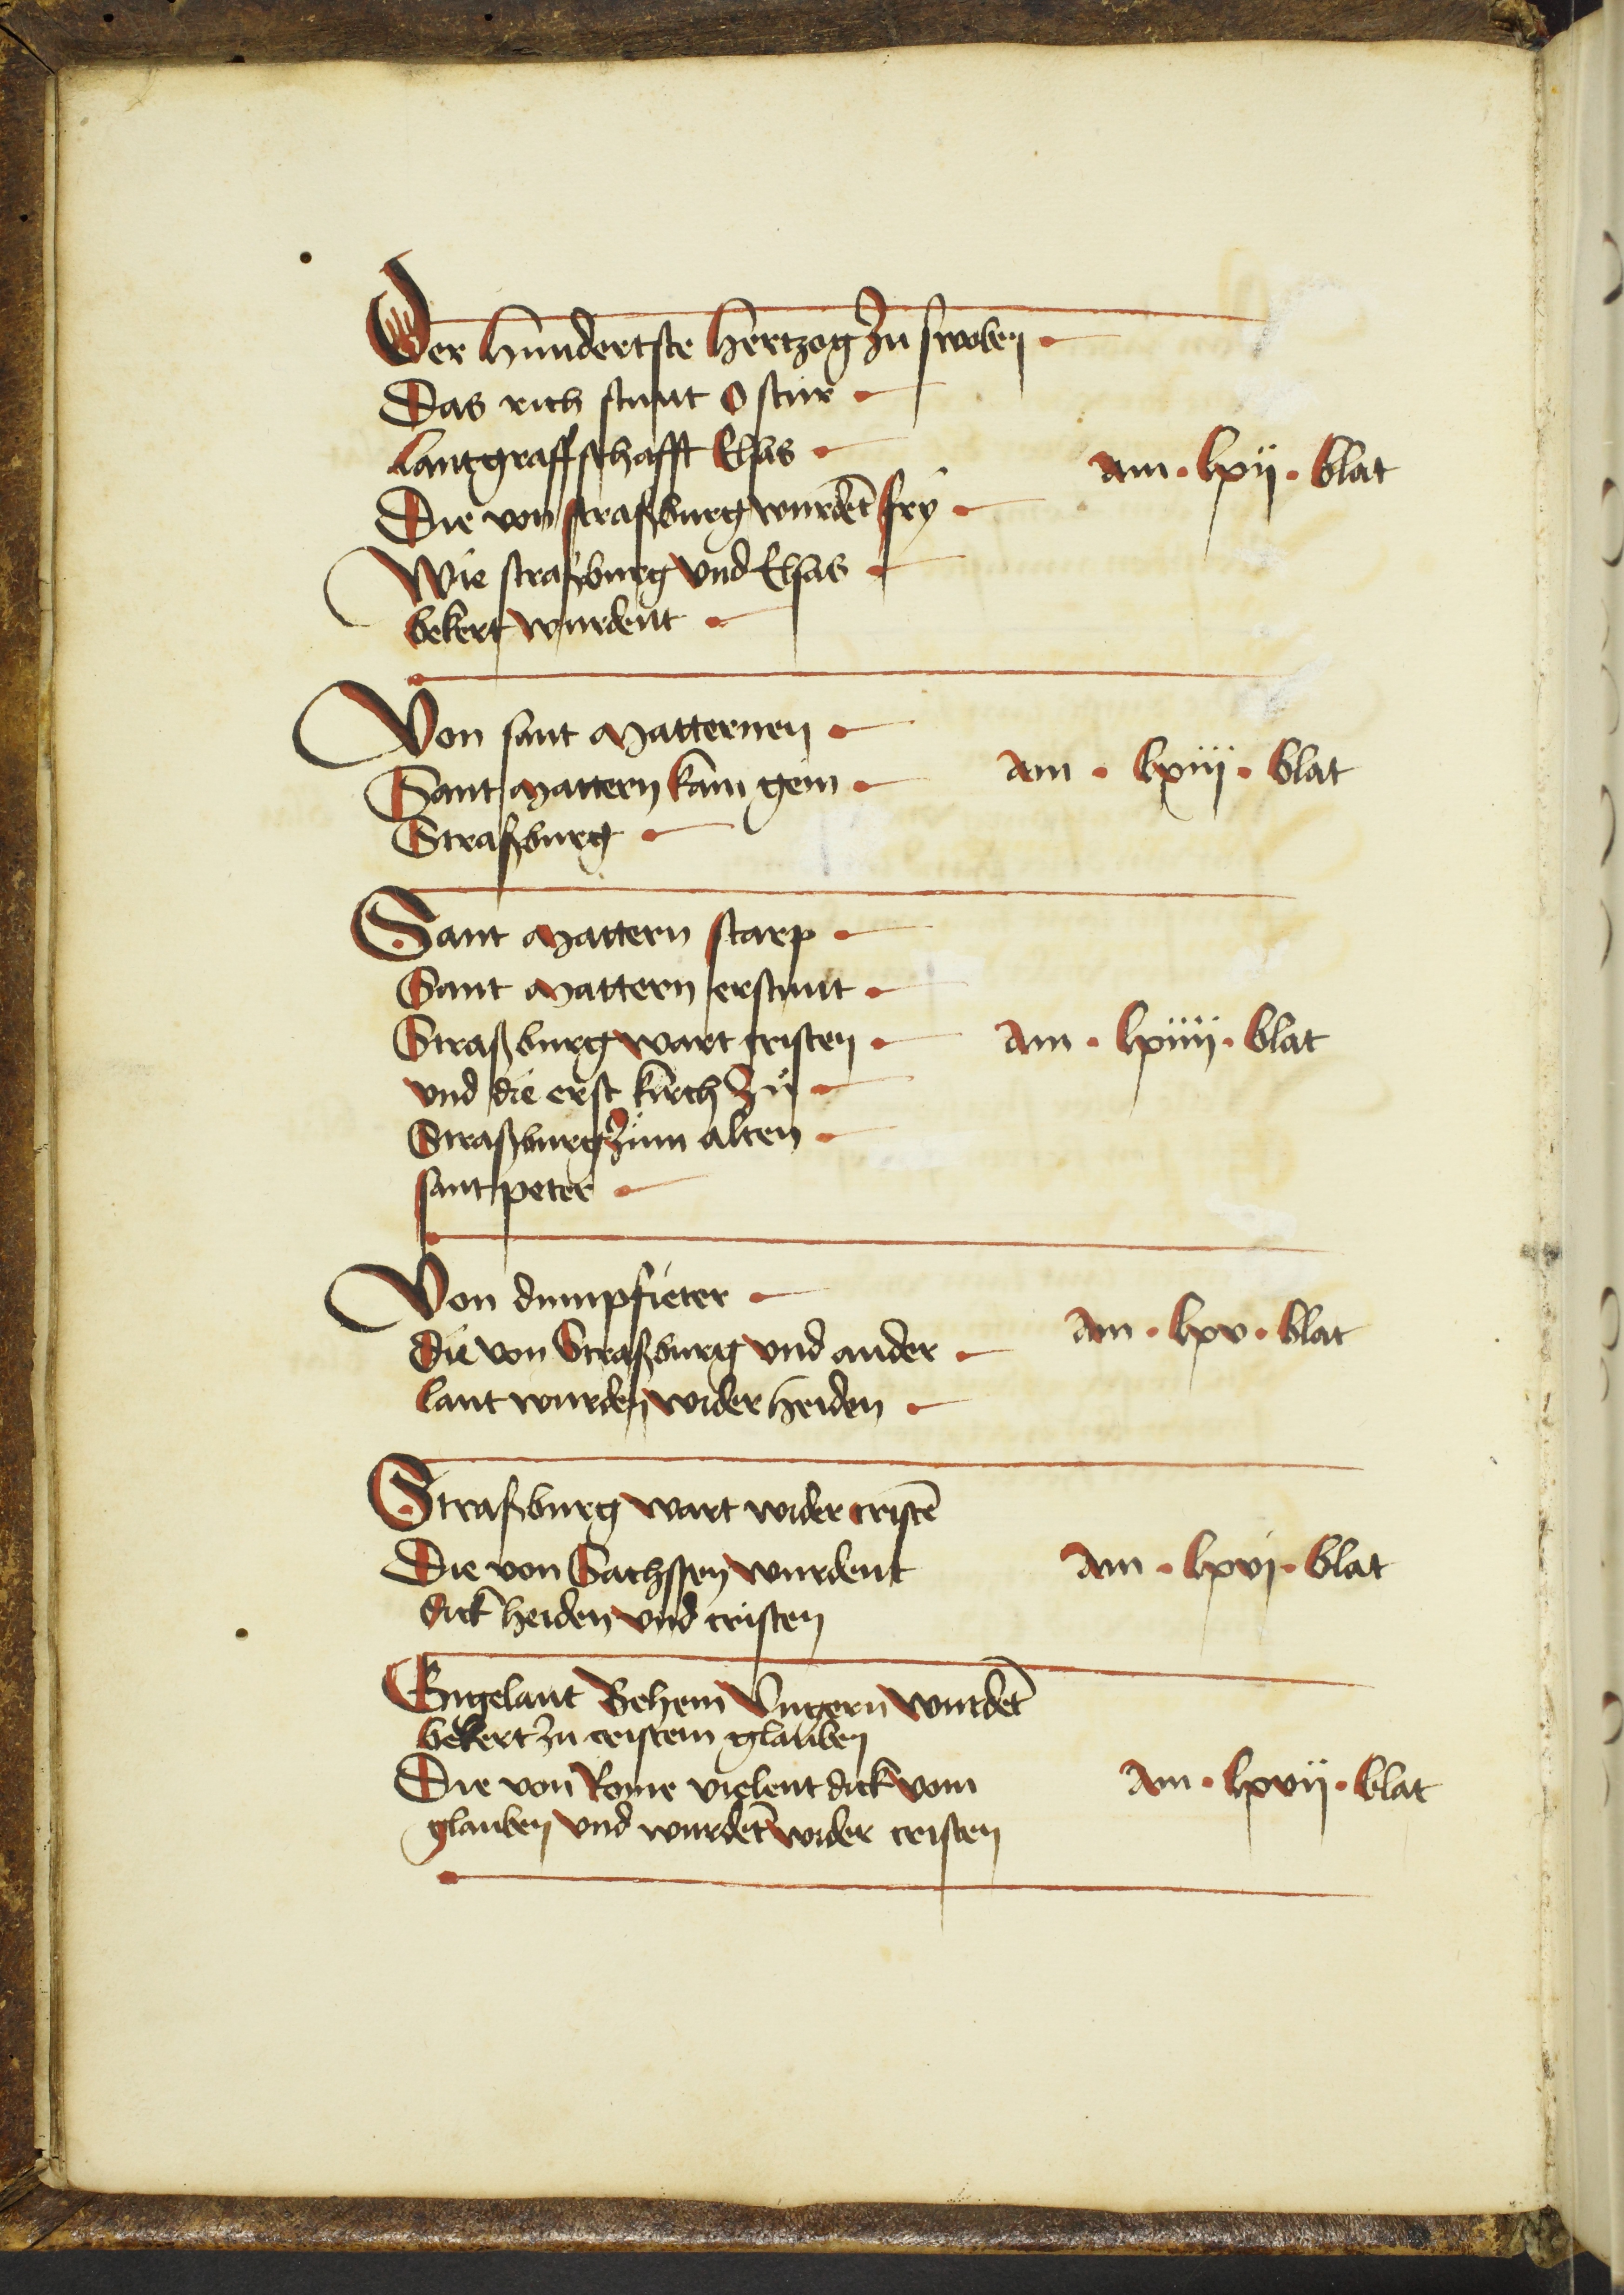 Der hundertste hertzog zu swoben
Das rich stunt o stür
Lantgraffschafft Elsas
am · lxij · blat
Die von straßburg wurdēt fry
Wie straßburg und Elsas
bekert wurdent
Von sant Matternen
Sant Mattern kam gein
am · lxiij · blat
Straßburg
Sant Mattern starp
Sant Mattern erstunt
Straßburg wart cristen
am · lxiiij · blat
und die erst kirch zů
Straßburg zům alten
sant peter
Von dumpfieter
die von Straßburg und ander
am · lxv · blat
lant wurden wider heiden
Straßburg wart wider cristē
Die von Sachssen wurdent
am · lxvj · blat
dick heiden und cristen
Engelant Behem Ungern wurdēt
bekert zu cristem glauben
Die von Rome vielent dick vom
am · lxvij · blat
glauben und wurdēt wider cristen